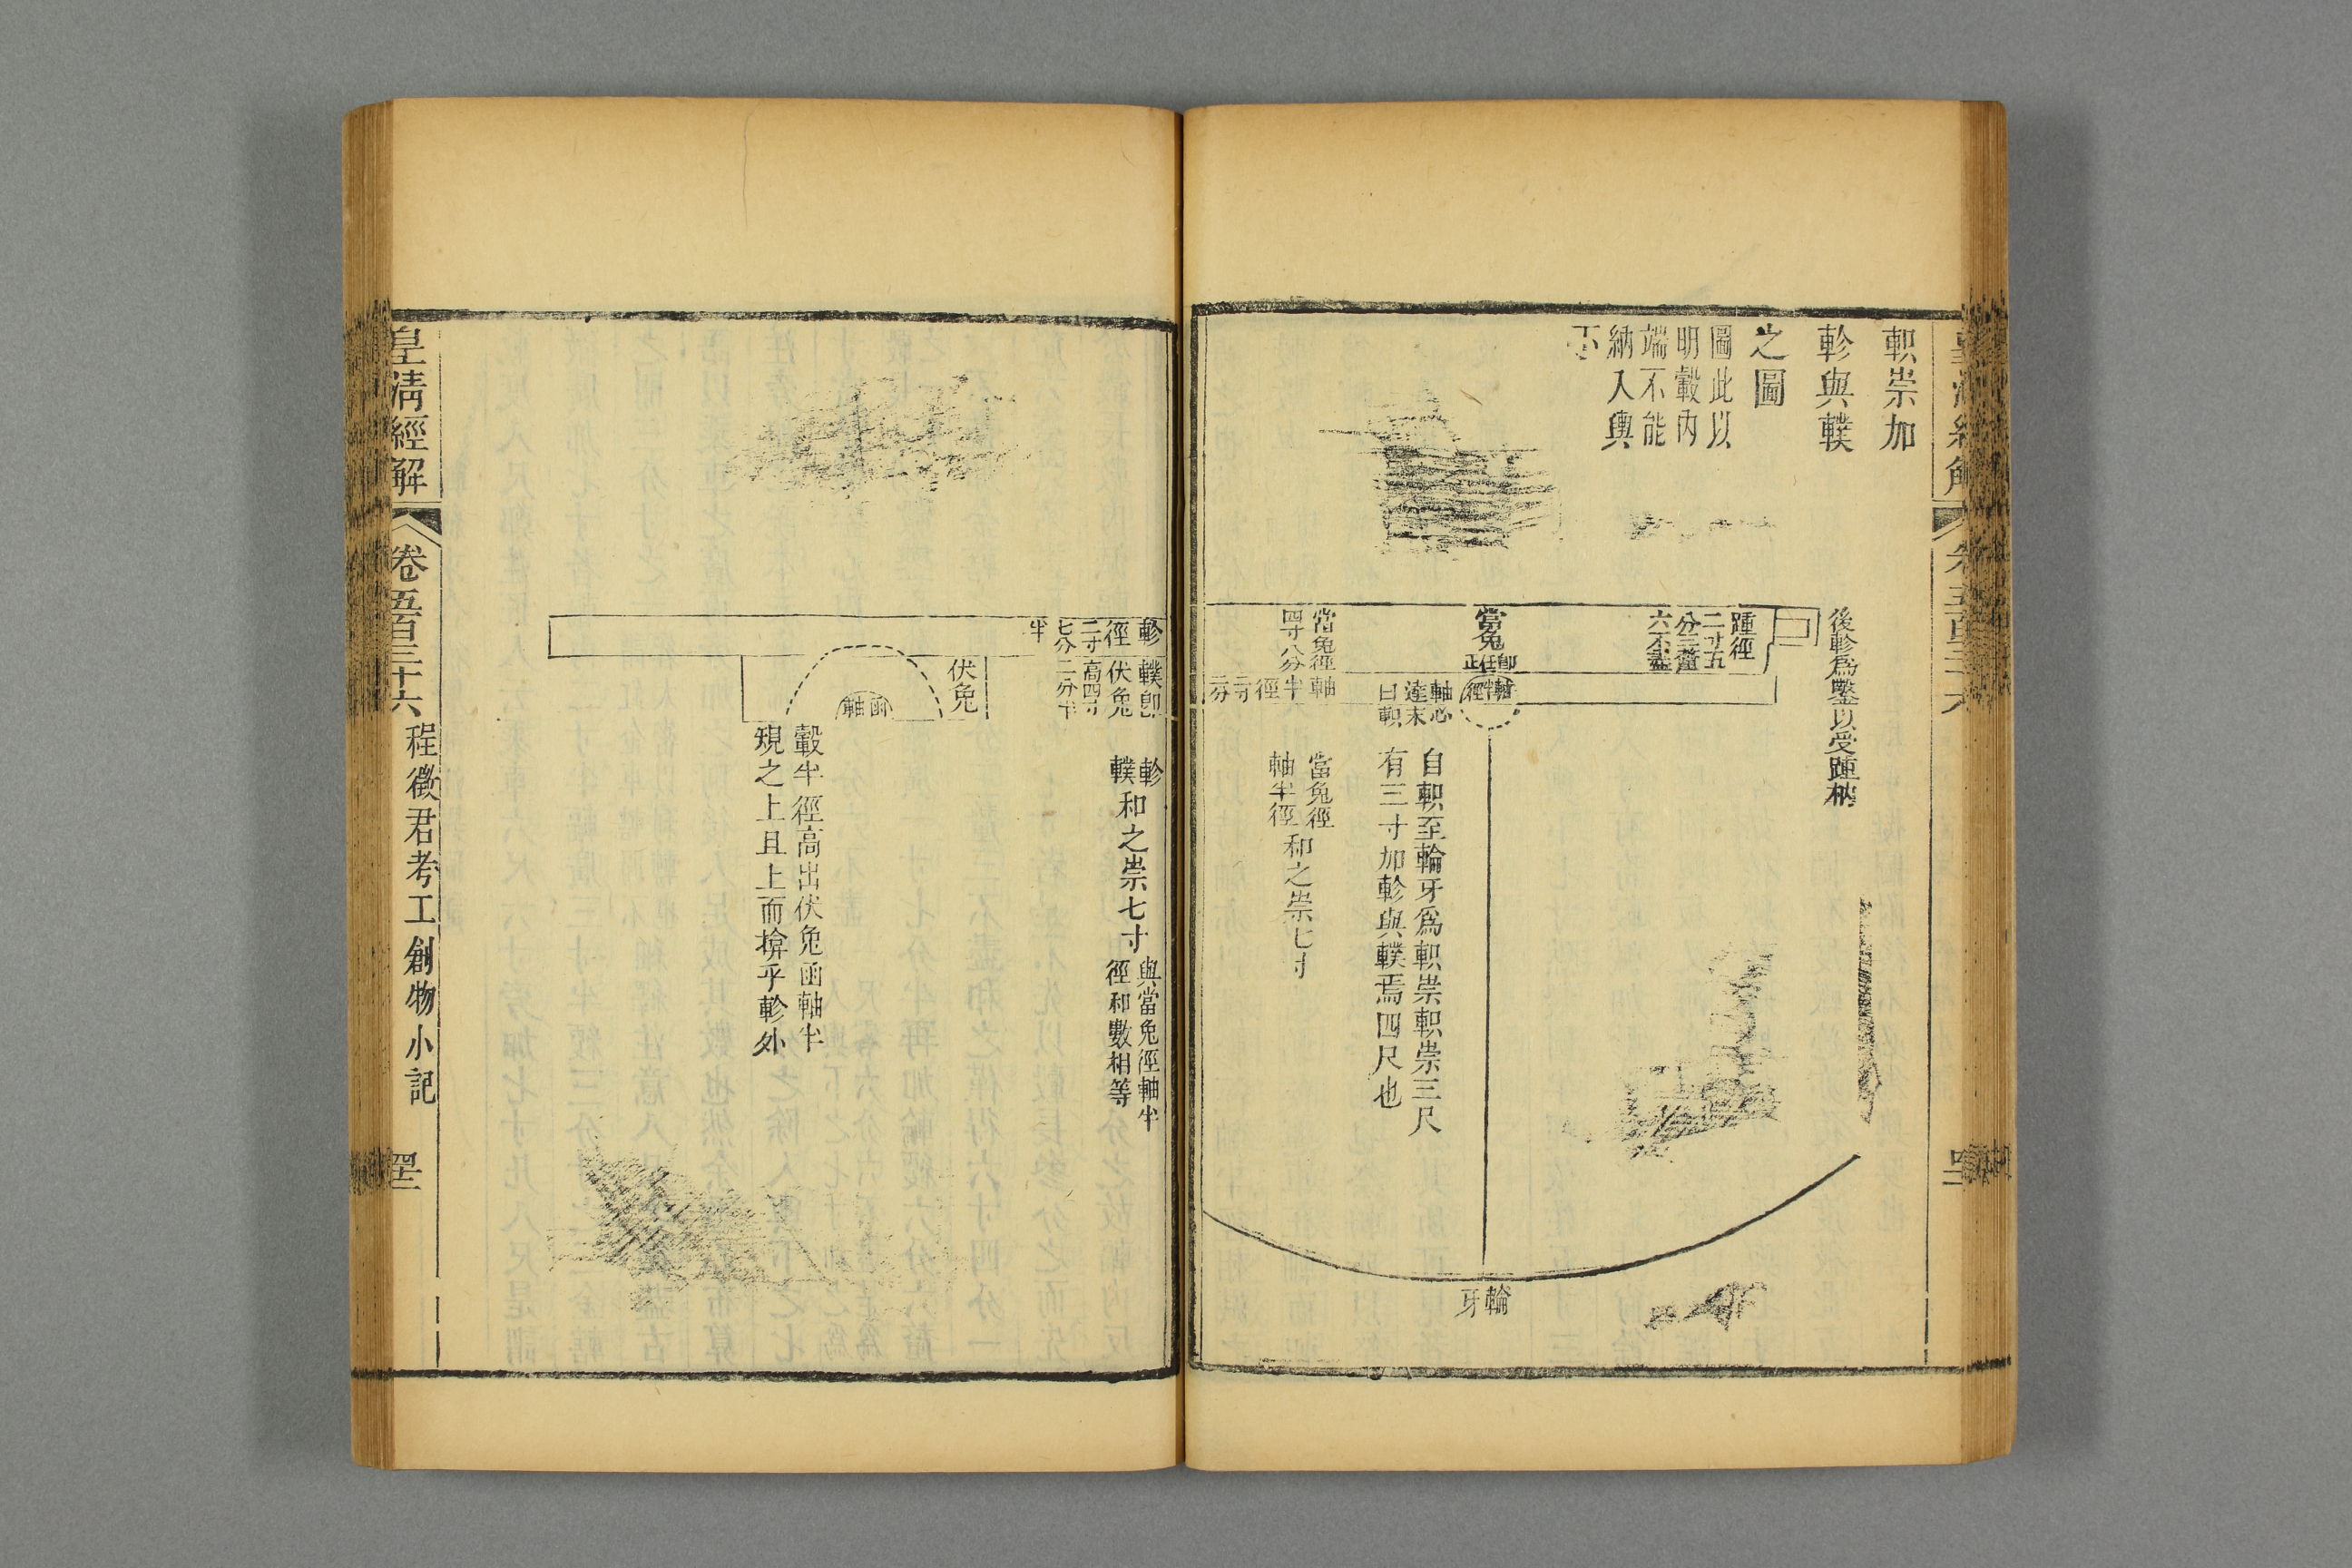 軹崇加
軫與轐
之圖
圖此以
明轂內
端不能
納入輿
下
後軫爲鑿以受踵枘
踵徑
二寸五
分三釐
六不盡
當兔
卽任正
軸半徑
軸心
達末
曰軹
當兔徑
四寸八分
軸
半
徑
二寸
二分
自軹至輪牙爲軹崇軹崇三尺
有三寸加軫與轐焉四尺也
當兔徑
軸半徑
和之崇七寸
輪
牙
軫
徑
二寸
七分
半
轐卽
伏兔
高四寸
二分半
軫
轐
和之崇七寸
與當兔徑軸半
徑和數相等
伏兔
函軸
轂半徑高出伏兔函軸半
規之上且上而揜乎軫外
皇清經解
卷五百三十六
程徵君考工創物小記